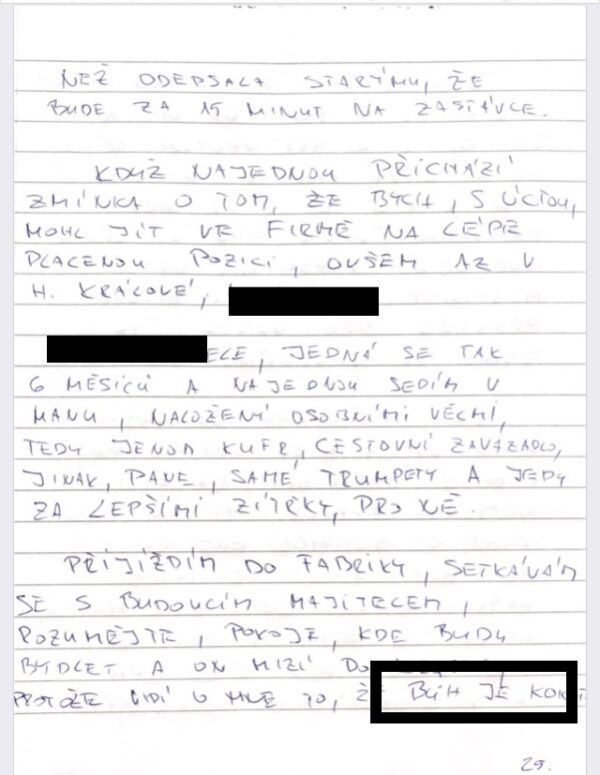 NEŽ ODEPSALA STARÝMU, ŽE
BUDE ZA 15 MINUT NA ZASTÁVCE.
KDYŽ NAJEDNOU PŘICHÁZÍ
ZMÍNKA O TOM, ŽE BYCH, S ÚCTOU,
MOHL JÍT VE FIRMĚ NA LÉPE
PLACENOU POZICI, OVŠEM AZ V
H. KRÁLOVÉ,
ELE, JEDNÁ SE TAK
6 MĚSÍCŮ A NAJEDNOU SEDÍM V
MANU, NALOŽENÝ OSOBNÍMI VĚCMI,
TEDY JENOM KUFR, CESTOVNÍ ZAVAZADLO,
JINAK, PANE, SAMÉ TRUMPETY A JEDU
ZA LEPŠÍMI ZÍTŘKY, PRO
PŘIJÍŽDÍM DO FABRIKY, SETKÁVÁM
SE S BUDOUCÍM MAJITELEM,
ROZUMĚJTE, POKOJE, KDE BUDU
BYDLET A ON MIZÍ DO
PROTOŽE VIDÍ U MNE TO, ŽE BŮH JE
29.